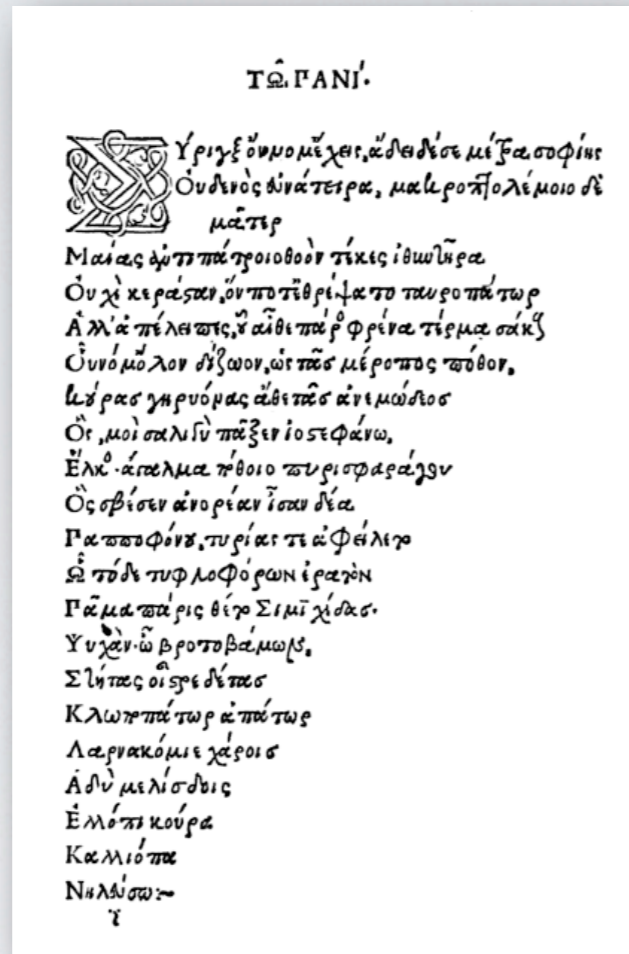 Τῼ͂ ΠΑΝΙ´.
Σύριγξ οὔνομ' ἔχεις, ἄδει δέ σε μέτρα σοφίης
Οὐδενὸς εὐνάτειρα, μακροπτολέμοιο δὲ
μᾶτερ
Μαίας ἀντιπάτροιο θοὸν τέκες ἰθυντῆρα
Οὐχὶ κεράσταν, ὅν ποτ' ἐθρέψατο ταυροπάτωρ
Ἀλλ' πάρος φρένα τέρμα σάκους
Οὔνομ' ὅλον δίζωον, ὡς τᾶς μέροπος πόθον,
κούρας γηρυόνας ἄθε τᾶς ἀνεμώδεος
Ὃς, μοίσα λιγὺ πᾶξεν ἰοστεφάνω,
Ἕλκος. ἄγαλμα πόθοιο πυρισφαράγου
Ὃς σβέσεν ἀνορέαν ἶσαν δέα
Παπποφόνου, τυρίας τε ἀφείλετο
Ὧ τόδε τυφλοφόρων ἐρατὸν
Πᾶμα πάρις θέτο Σιμιχίδας.
Ψυχὰν. ὧ βροτοβάμων,
Στήτας οἶστρε δέτας
Κλωποπάτωρ ἀπάτωρ
Λαρνακόμιε χάροις
Ἁδὺ μελίσδοις
Ἔλλοπι κούρα
Καλλιόπα